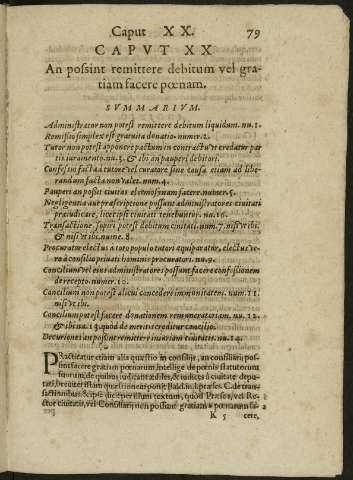 Caput XX. 79
CAPVT XX
An possint remittere debitum vel gra-
tiam facere pœnam.
SVMMARIVM.
Administrator non potest remittere debitum liquidum. nu. 1.
Remissio simplex est gratuita donatio. numer. 2.
Tutor non potest apponere pactum in contractu vt credatur par
tis iuramento. nu. 3. & ibi an pauperi debitori.
Confessio facta à tutore vel curatore sine causa etiam ad libe-
randam facta non valet. num. 4.
Pauperi an possit ciuitas eleemosynam facere. numer. 5.
Negligentia aut praescriptione possunt administratores ciuitati
praeiudicare, licet ipsi ciuitati tenebuntur. nu. 16.
Transactione sopiri potest debitum ciuitati. num. 7. nisi vt ibi.
& nisi vt ibi. nume. 8.
Procurator electus à toto populo tutori aequiparatur, electus ve-
ro à consilio priuati hominis procuratori. nu. 9.
Concilium vel eius administratores possunt facere confessionem
de recepto. numer. 10.
Concilium non potest alicui concedere immunitatem. num. 11.
nisi vt ibi.
Concilium potest facere donationem remuneratoriam. nu. 12.
& ibi nu. 13 quod de meritis creditur concilio.
Decuriones an possint remittere iniuriam ciuitatis. nu. 14.
PRacticatur etiam alia quæstio in consilijs, an consiliarij pos-
sint facere gratiam pœnarum, intellige de pœnis statutorum
suorum, de quibus iudicant ædiles, & iudices à ciuitate depu-
tati, breuiter istam quæstionem ponit Bald. in l. præses. C. de tran-
sactionibus. & ipse dicit per illum textum, quod Præses, vel Re-
ctor ciuitatis, vel Consiliarij non possunt gratiam pœnarum fa-
K 5 cere,